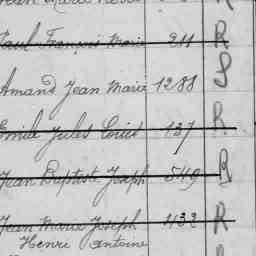 Paul François Marie 211 R
Amand Jean Marie 1288 S
Emile Jules Louis 137 R
Jean Baptiste Joseph 549 R
Jean Marie Joseph 1132 R
Henri Antoine